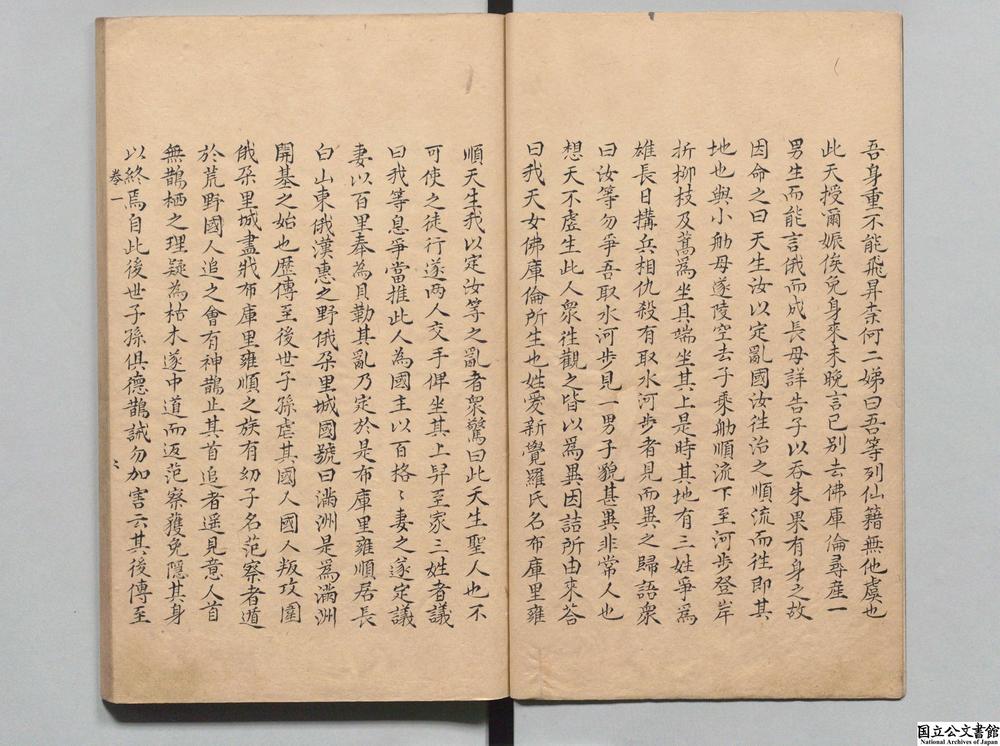 吾身重不能飛昇柰何二娣曰吾等列仙籍無他虞也
此天授爾娠俟免身來未晚言已别去佛庫倫尋産一
男生而能言俄而成長母詳告子以吞朱果有身之故
因命之曰天生汝以定亂國汝徃治之順流而徃即其
地也與小舠母遂陵空去子乘舠順流下至河步登岸
折柳枝及蒿為坐具端坐其上是時其地有三姓爭為
雄長日搆兵相仇殺有取水河步者見而異之歸語衆
曰汝等勿爭吾取水河步見一男子貌甚異非常人也
想天不虛生此人衆徃觀之皆以為異因詰所由來荅
曰我天女佛庫倫所生也姓愛新覺羅氏名布庫里雍
順天生我以定汝等之亂者衆驚曰此天生聖人也不
可使之徒行遂兩人交手俾坐其上舁至家三姓者議
曰我等息爭當推此人為國主以百格〻妻之遂定議
妻以百里奉為貝勒其亂乃定於是布庫里雍順居長
白山東俄漢惠之野俄朶里城國號曰滿洲是為滿洲
開基之始也歴傳至後世子孫虐其國人國人叛攻圍
俄朶里城盡戕布庫里雍順之族有幼子名范察者遁
於荒野國人追之會有神鵲止其首追者遥見意人首
無鵲栖之理疑為枯木遂中道而返范察獲免隱其身
以終焉自此後世子孫俱德鵲誡勿加害云其後傳至
卷一
六
国立公文書館
National Archives of Japan